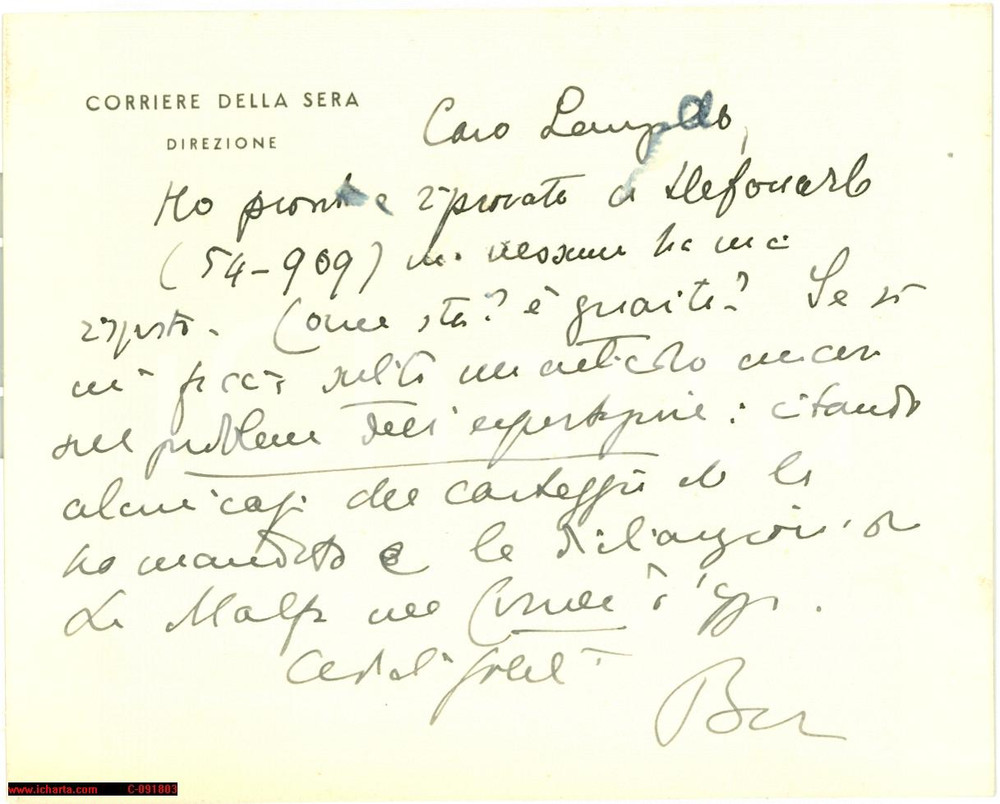 CORRIERE DELLA SERA
DIREZIONE
Caro
Ho e riprovato a telefonarle
(54-909) ma nessuno ha mai
risposto. Come sta? è guarito? Se sì
mi faccia subito un articolo ancora
sul problema dell'esportazione: citando
alcuni casi del carteggio che le
ho mandato e le dichiarazioni di
La Malfa nel Corriere d'oggi.
Cordialità
www.icharta.com C-091803